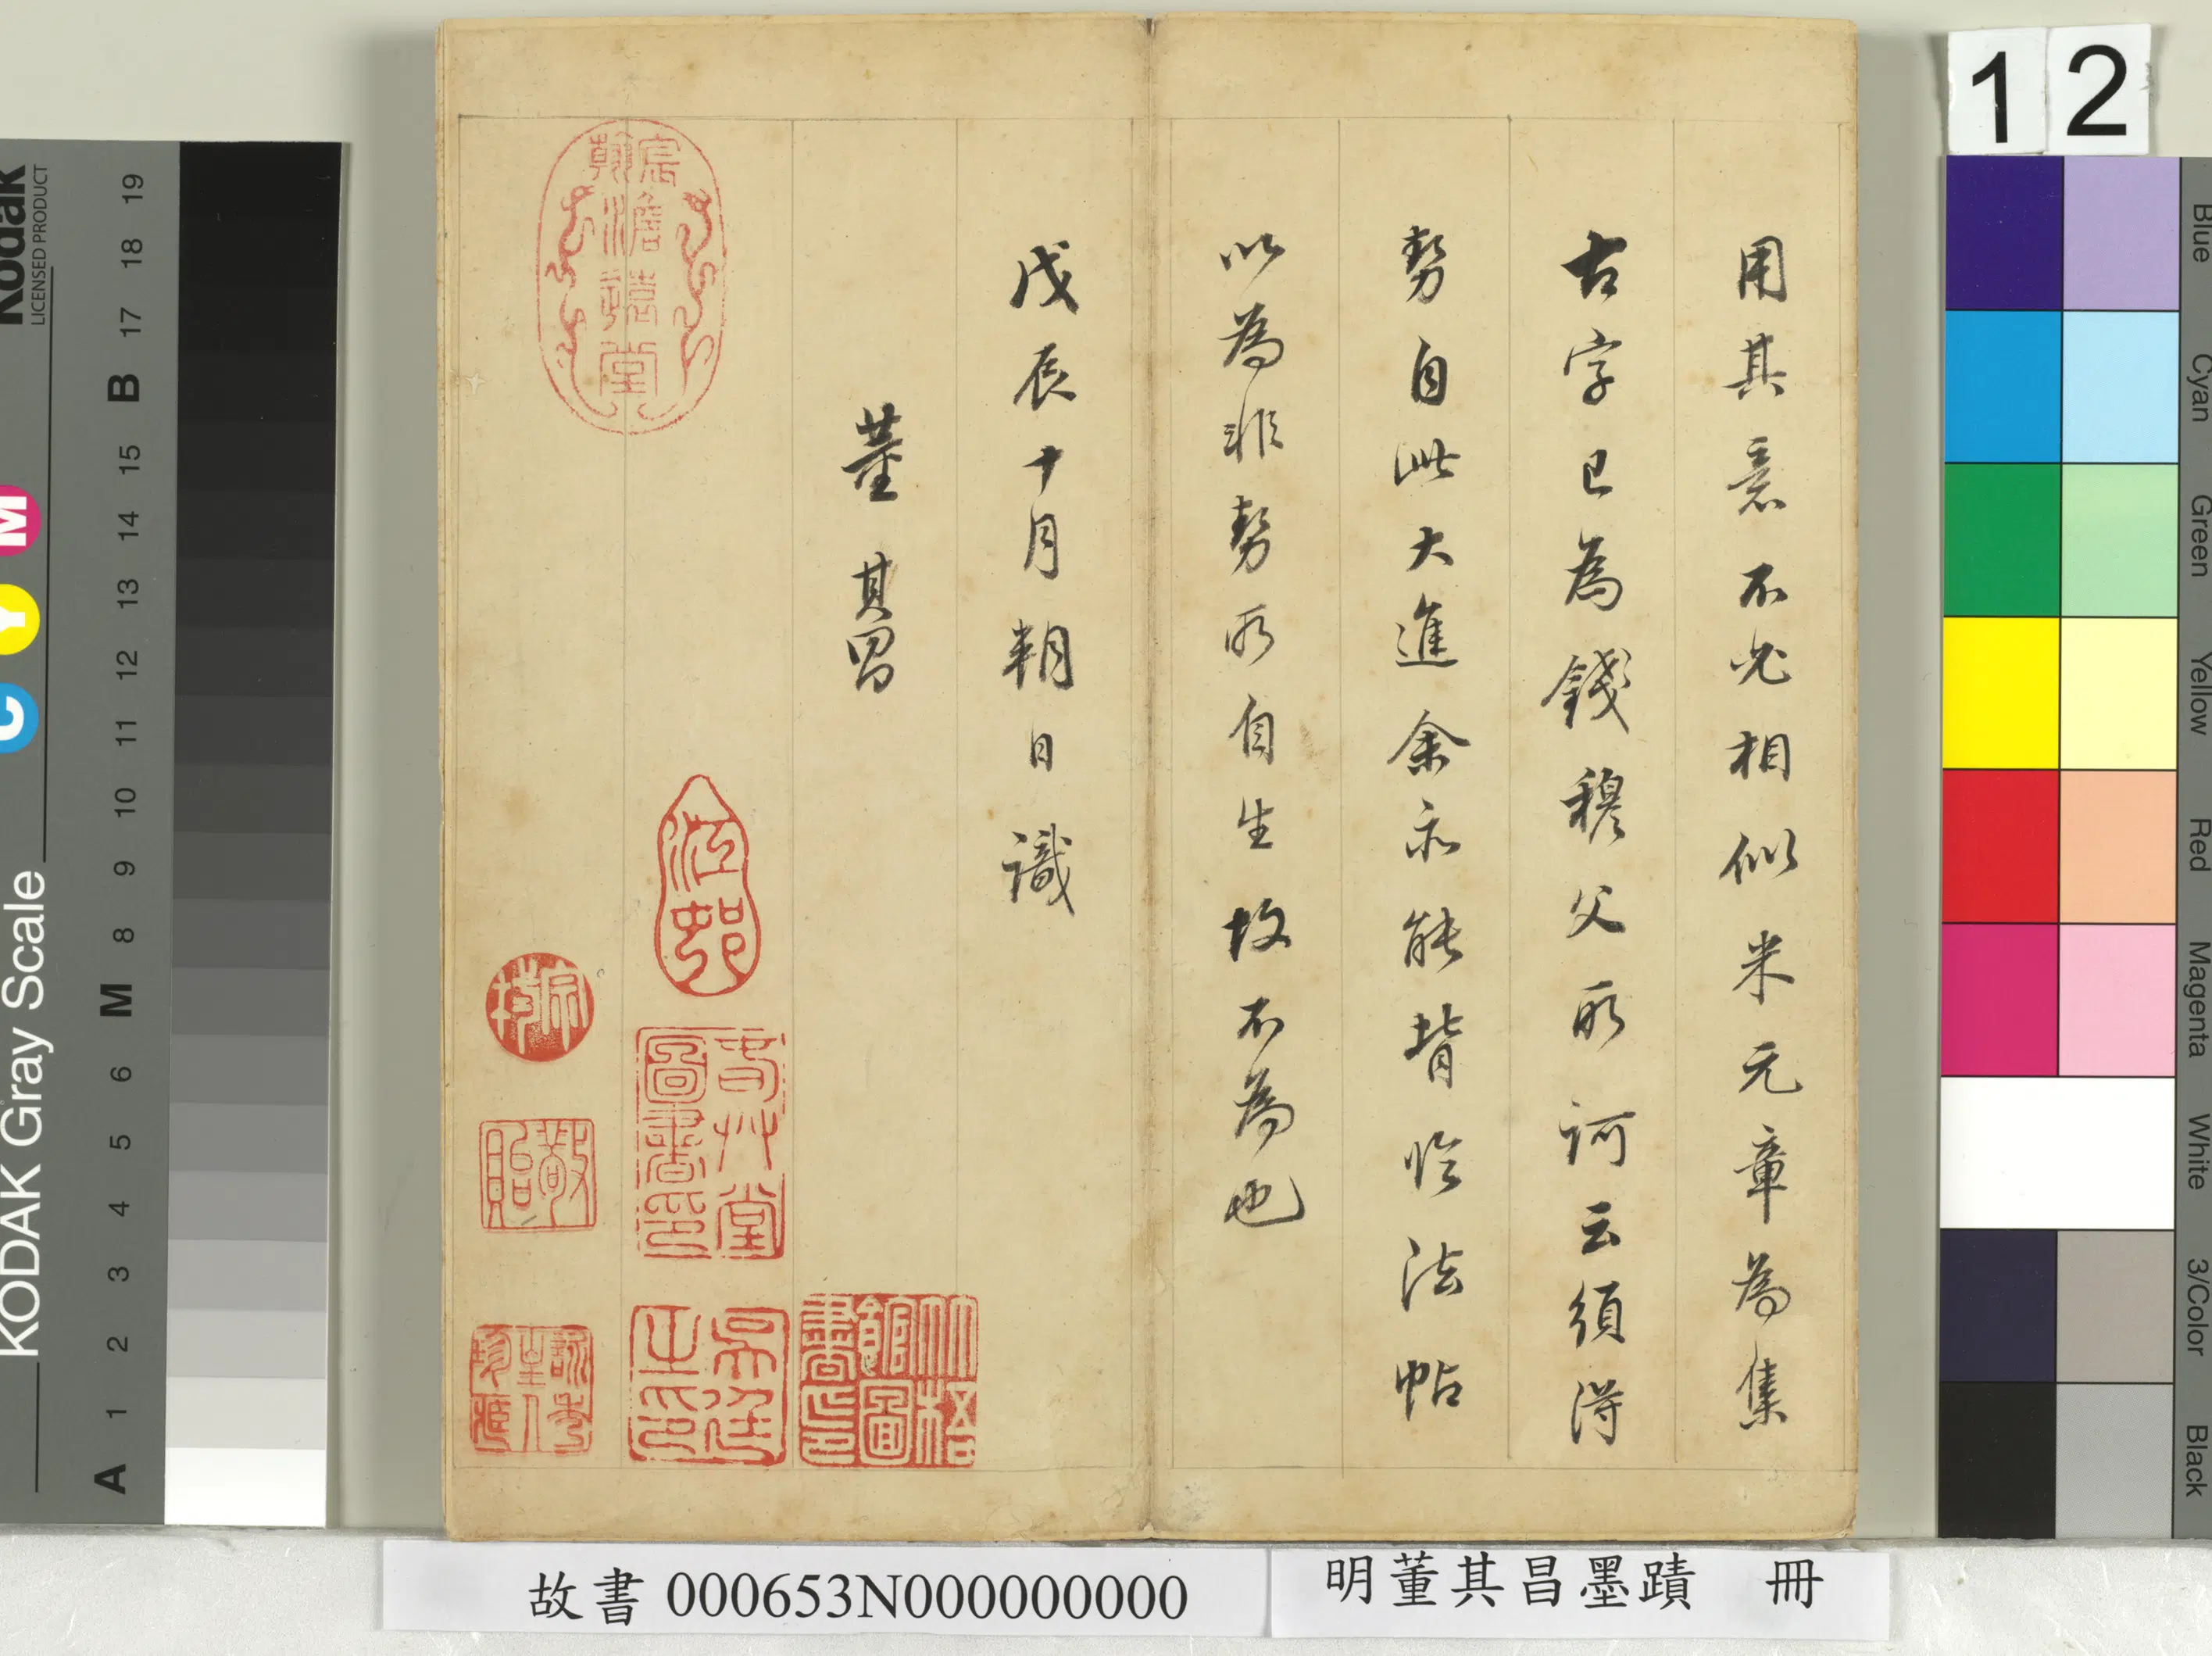 用其意不必相似米元章為集
古字已為錢穆父所訶云須得
勢自此大進余亦能背臨法帖
以為非勢所自生故不為也
戊辰十月朔日識
董其昌
宸翰
澹遠堂
圖書印
竹楷
館圖
書印
12
故書 000653N000000000
明董其昌墨蹟 冊
Kodak
LICENSED PRODUCT
KODAK Gray Scale
C Y M
A 1 2 3 4 5 6 M 8 9 10 11 12 13 14 15 B 17 18 19
Blue
Cyan
Green
Yellow
Red
Magenta
White
3/Color
Black